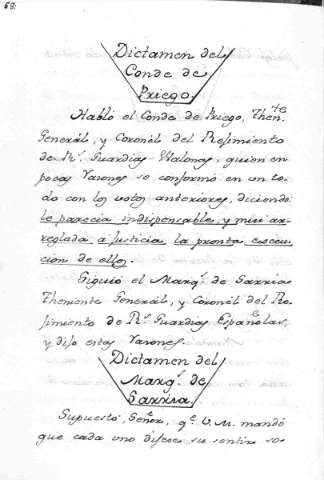 68.
Dictamen del
Conde de
Priego.
Habló el Conde de Priego, Then.te
General, y Coronèl del Regimiento
de R.s Guardias Walonas, quien en
pocas razones se conformó en un to-
do con los votos anteriores, diciendo
le parecia indispensable, y mui ar-
reglada, a Justicia la pronta execu-
cion de ellos.
Siguió el Marq.s de Sarria
Theniente General, y Coronèl del Re-
gimiento de R.s Guardias Españolas,
y dijo estas razones.
Dictamen del
Marq.s de
Sarria.
Supuesto, Señor, q.e V. M. mandó
que cada uno dijese su sentir so-